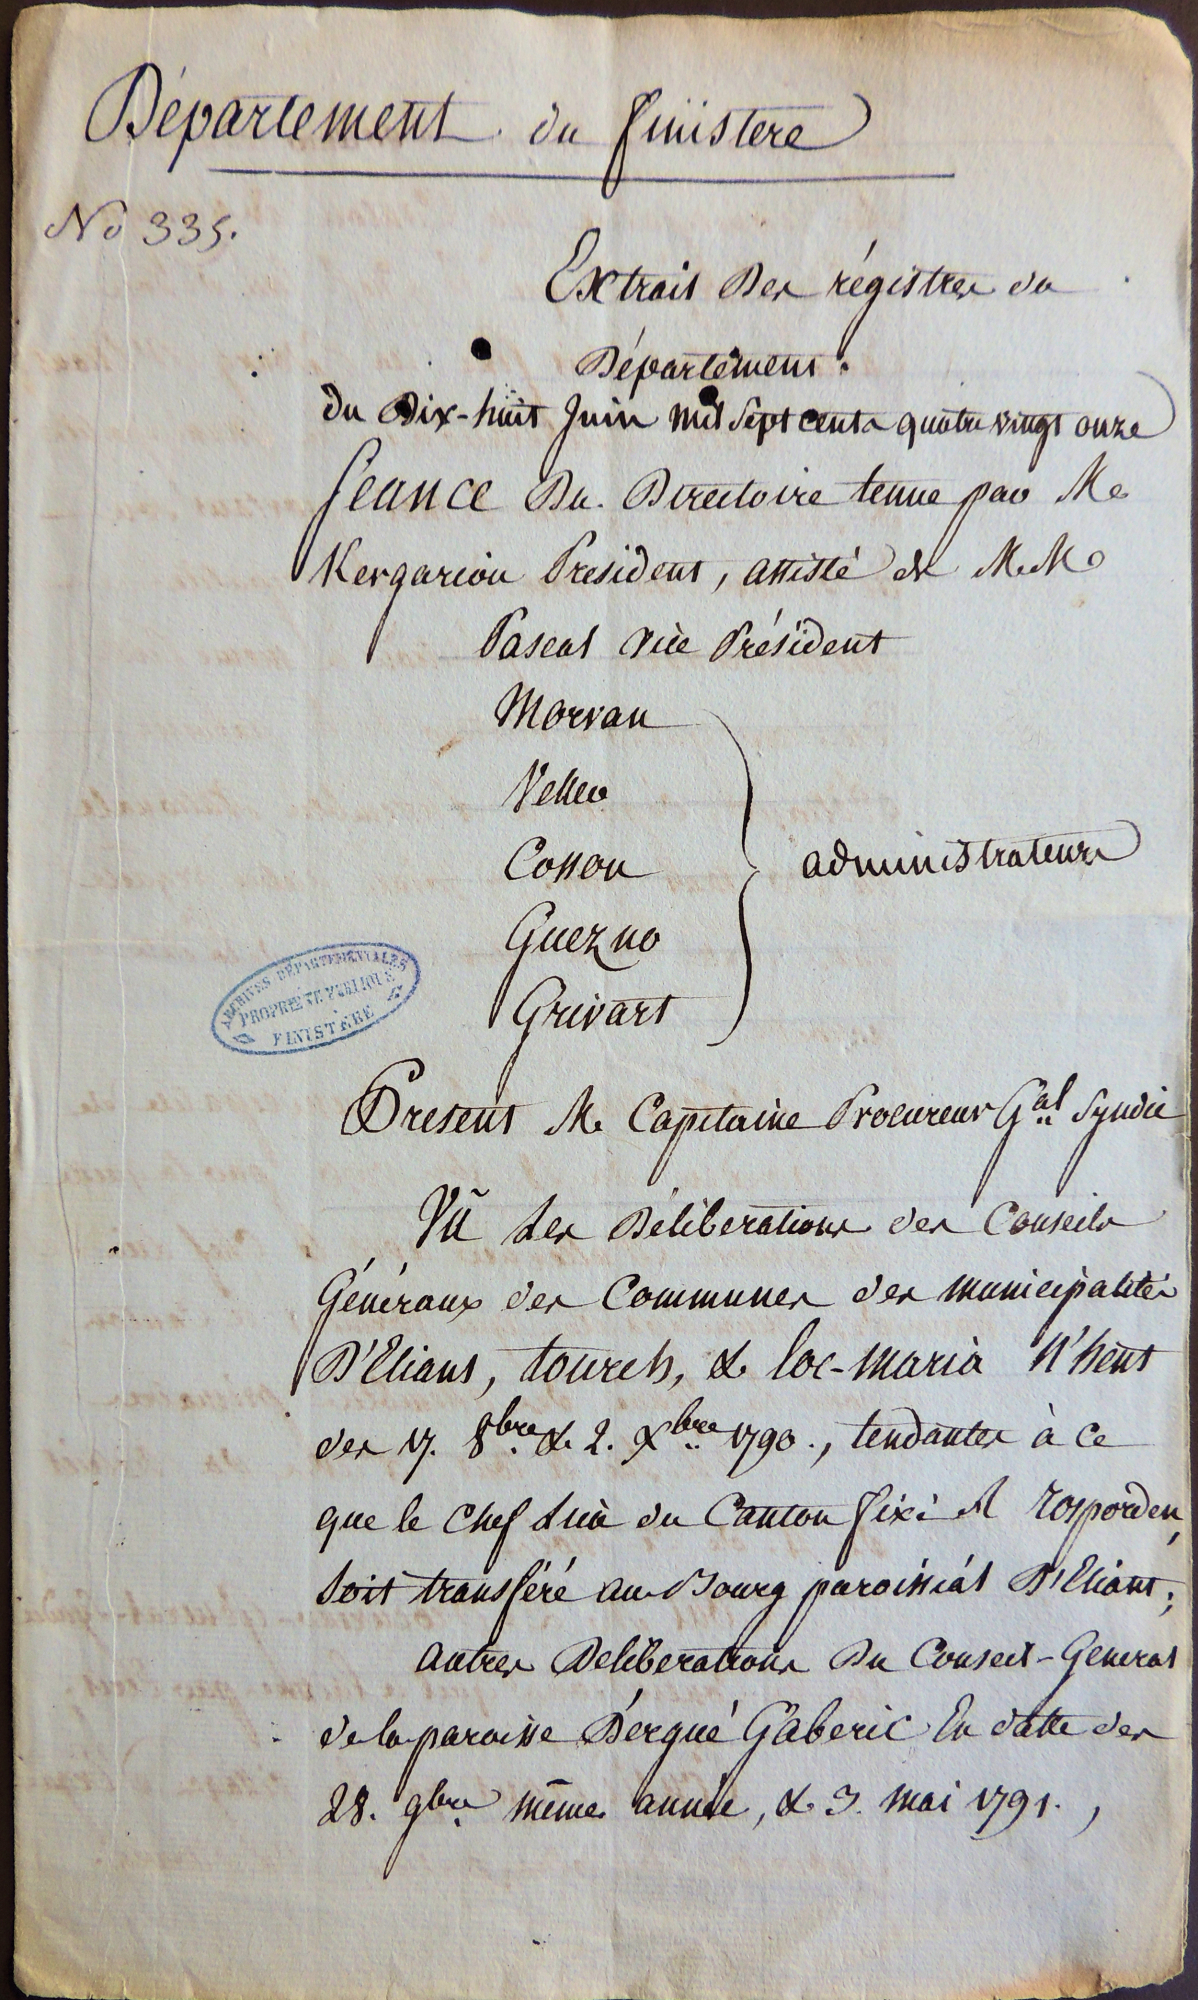 Département du finistere
No 335.
Extrait Des régistres du
Département.
du Dix-huit Juin mil Sept cents quatre vingt onze
Seance Du Directoire tenue par Mr
Kergariou President, assisté de M.Mrs
Pascal vice Président
Morvan
Veller
Cosson
Guezno
Grivart
administrateurs
Present M. Capitaine Procureur Gal. Syndic
Vû Les Déliberations des Conseils
Généraux des Communes des municipalités
D'Eliant, tourch, & loc-maria h'hent
des 17. 8bre. & 2. Xbre. 1790., tendantes à ce
que le chef Lieu du Canton fixé A rosporden,
Soit transféré au Bourg paroissial D'Eliant;
autres Deliberations Du Conseil-General
de la paroisse D'ergué Gâberic En datte des
28. 9bre. même année, & 3. mai 1791.,
ARCHIVES DÉPARTEMENTALES
PROPRIÉTÉ PUBLIQUE
FINISTÈRE